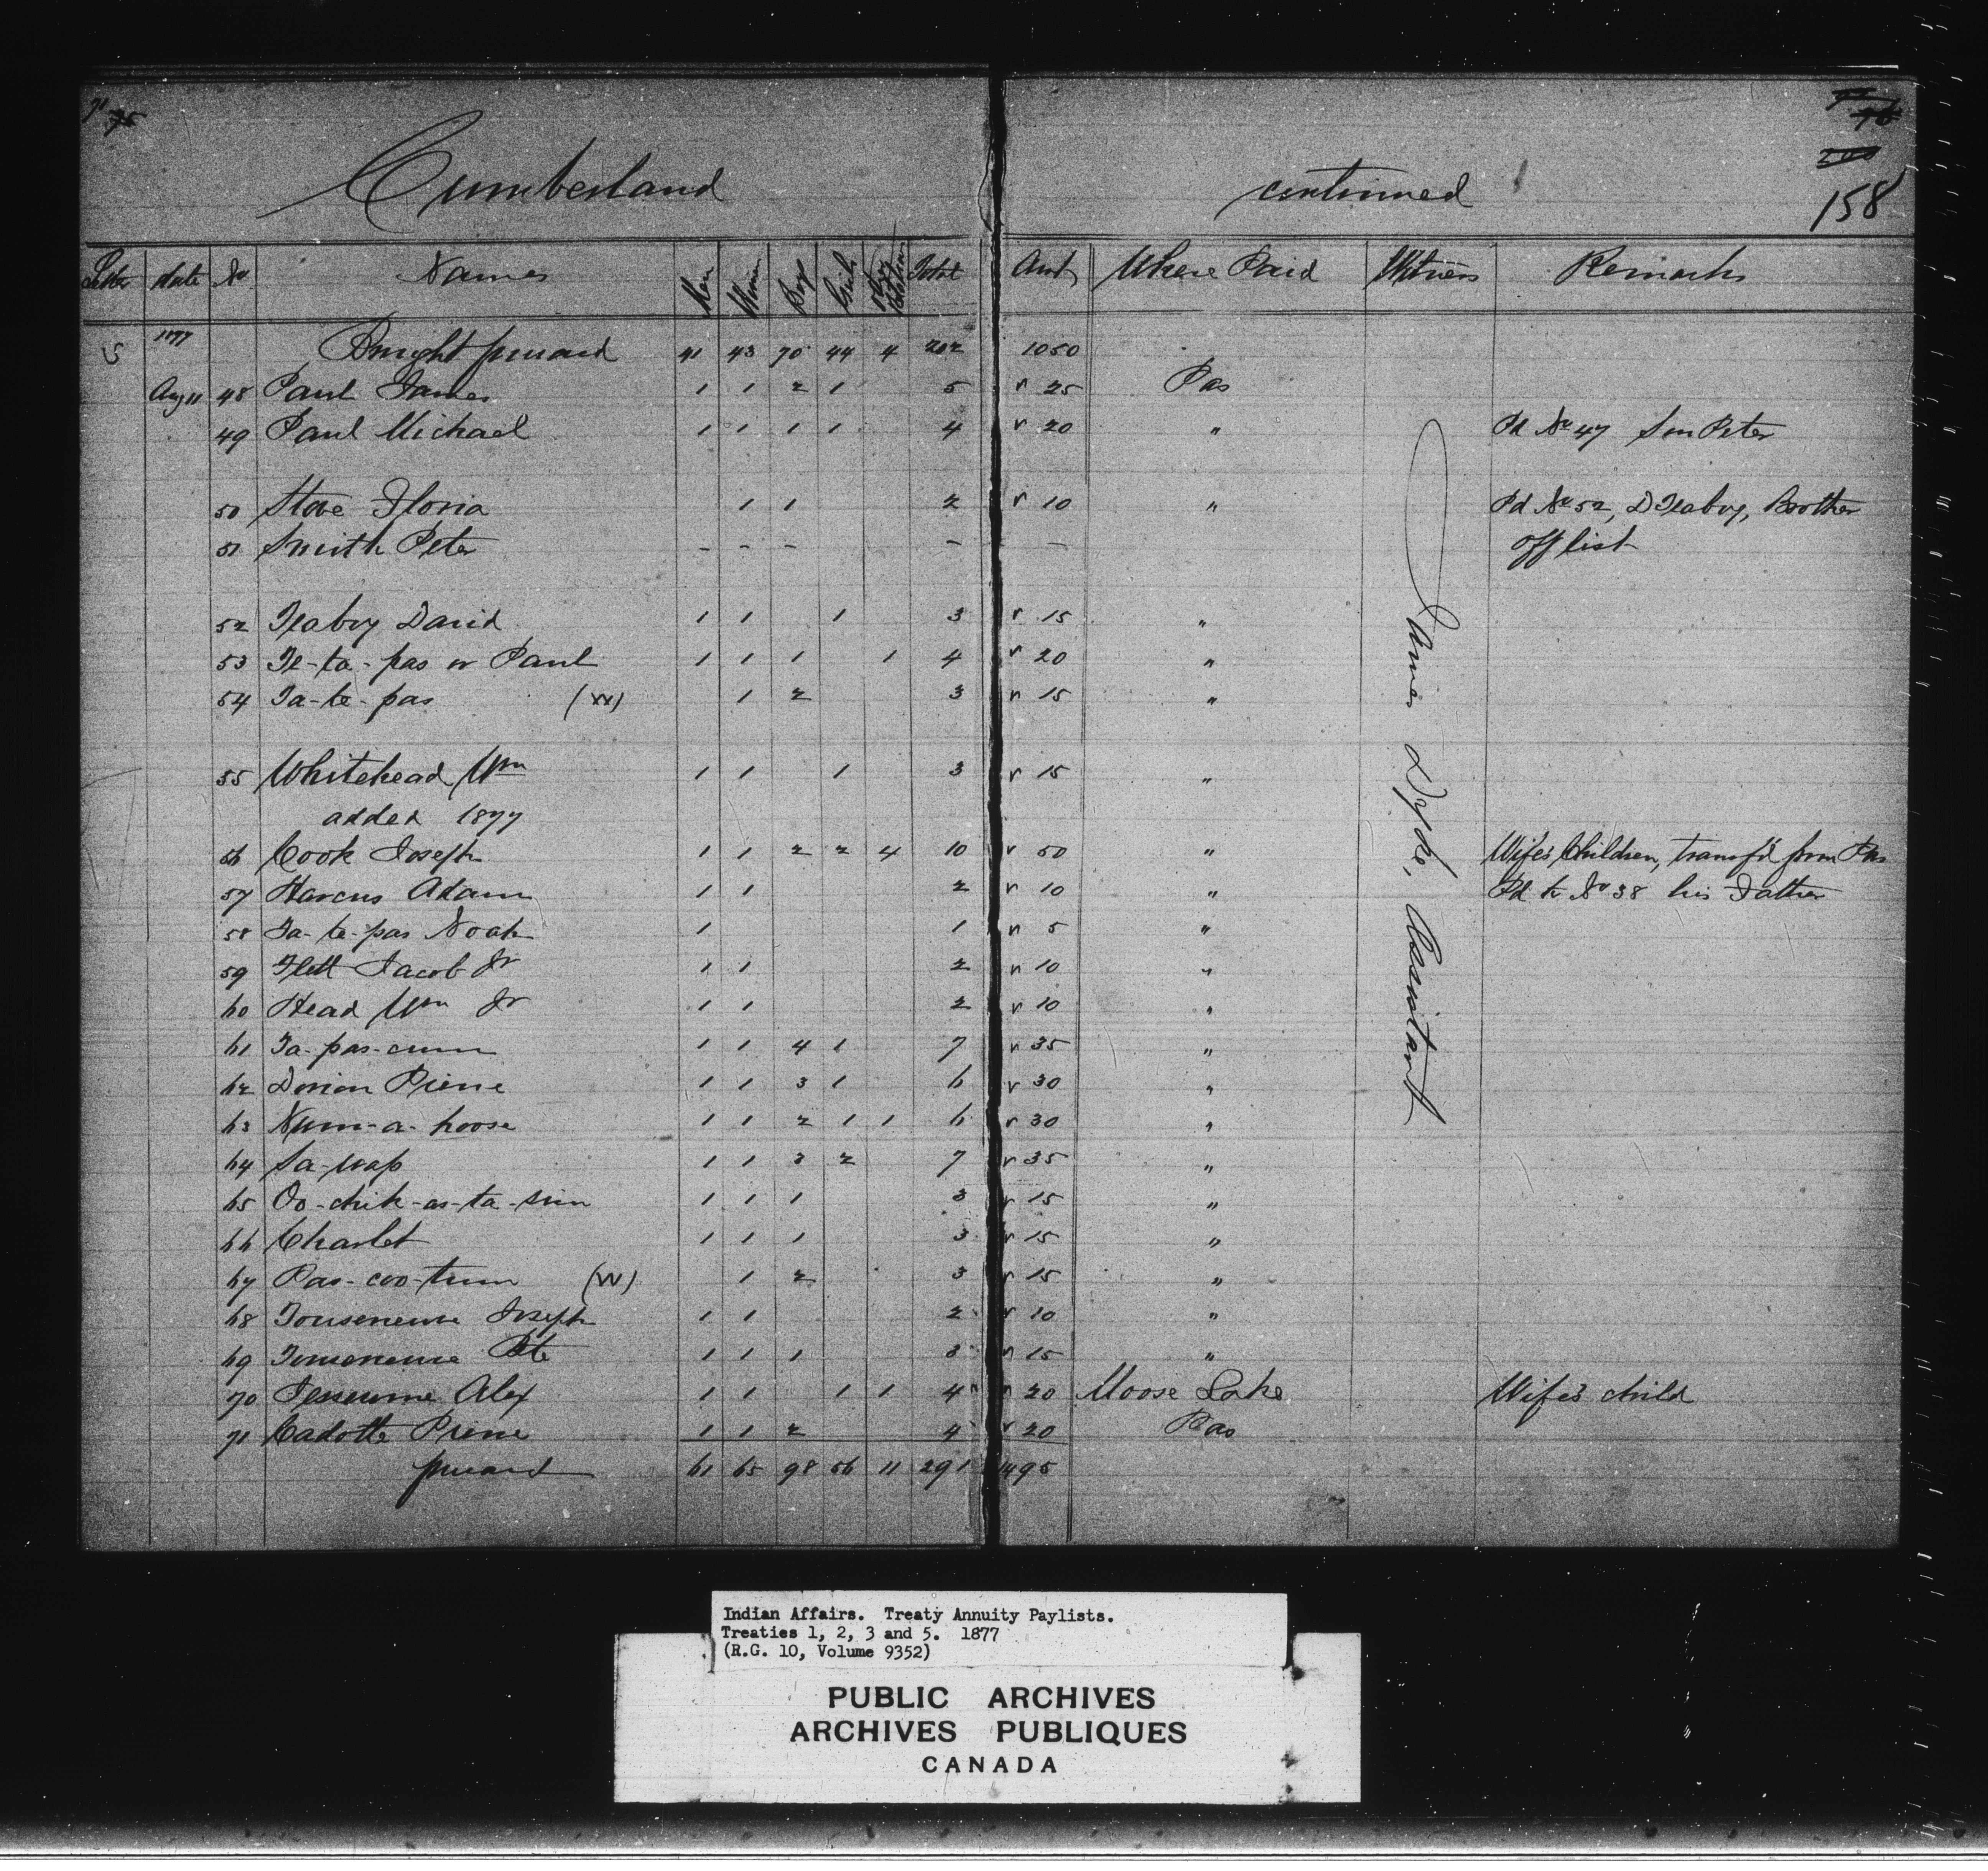 71 75
76
200
158
Cumberland continued
Letter date No Names Men Women Boys Girls Other Relations Total Amt Where Paid Witness Remarks
5 1877 Brought forward 41 43 70 44 4 202 1050
Aug 11 48 Paul James 1 1 2 1 5 25 Pas
49 Paul Michael 1 1 1 1 4 20 " Pd No 47 Son Peter
50 Stove Floria 1 1 2 10 " Pd No 52, D Flaboy, Brother
51 Smith Peter - - - - - off list
52 Flaboy David 1 1 1 3 15 "
53 Te-ta-pas or Paul 1 1 1 1 4 20 "
54 Ta-te-pas (W) 1 2 3 15 "
55 Whitehead Wm 1 1 1 3 15 "
added 1877
56 Cook Joseph 1 1 2 2 4 10 50 " Wife's Children, transf'd from Pas
57 Harcus Adam 1 1 2 10 " Pd to No 38 his Father
58 Ta-te-pas Noah 1 1 5 "
59 Flett Jacob Jr 1 1 2 10 "
60 Head Wm Jr 1 1 2 10 "
61 Ta-pas-cum 1 1 4 1 7 35 "
62 Dorion Pierre 1 1 3 1 6 30 "
63 Num-a-hoose 1 1 2 1 1 6 30 "
64 Sa-wap 1 1 3 2 7 35 "
65 Oo-chik-as-ta-sim 1 1 1 3 15 "
66 Charlet 1 1 1 3 15 "
67 Pas-coo-tum (W) 1 2 3 15 "
68 Touseneuse Joseph 1 1 2 10 "
69 Touseneuse Pte 1 1 1 3 15 "
70 Jesseume Alex 1 1 1 1 4 20 Moose Lake Wife's child
71 Cadotte Pierre 1 1 2 4 20 Pas
forward 61 65 98 56 11 291 1495
James Dyde, Assistant
Indian Affairs. Treaty Annuity Paylists.
Treaties 1, 2, 3 and 5. 1877
(R.G. 10, Volume 9352)
PUBLIC ARCHIVES
ARCHIVES PUBLIQUES
CANADA